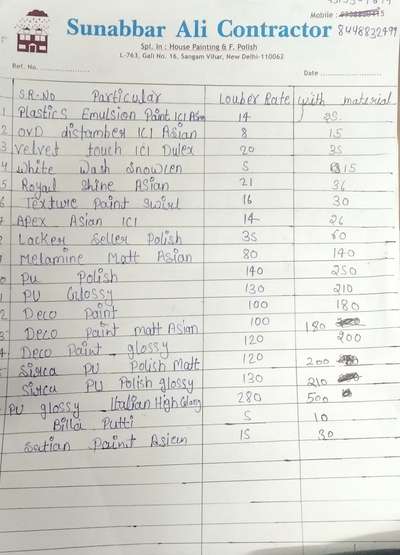 Sunabbar Ali Contractor
Mobile :
8448832499
Spl. In : House Painting & F. Polish
L-763, Gali No. 16, Sangam Vihar, New Delhi-110062
Ref. No.
Date
S.R.No Particular Louber Rate with material
1 Plastics Emulsion Paint ICI Asian 14
2 OVD distamber ICI Asian 8 15
3 Velvet touch ICI Dulex 20 35
4 White Wash Snowlen 5 15
5 Royal Shine Asian 21 36
6 Texture Paint Swirl 16 30
7 Apex Asian ICI 14 26
Lacker Seller Polish 35 60
Melamine Matt Asian 80 140
0 PU Polish 140 250
1 PU Glossy 130 210
2 Deco Paint 100 180
3 Deco Paint matt Asian 100 180
4 Deco Paint glossy 120 200
5 Sirca PU Polish Matt 120 200
Sirca PU Polish glossy 130 210
PU glossy Italian High 280 500
Billa Putti 5 10
Satian Paint Asien 15 30